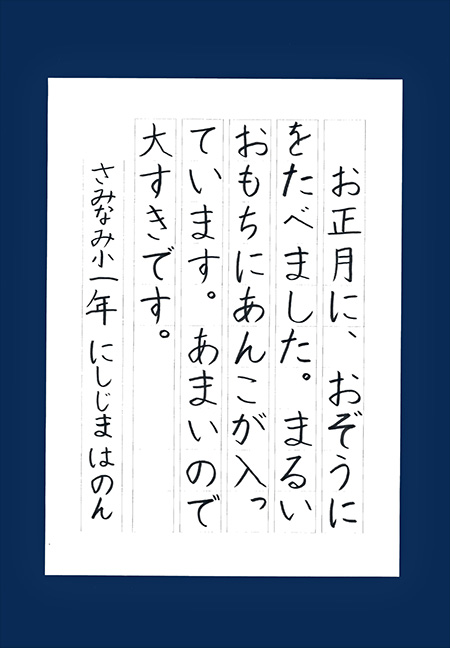 お正月に、おぞうに
をたべました。まるい
おもちにあんこが入っ
ています。あまいので
大すきです。
さみなみ小一年 にしじまはのん